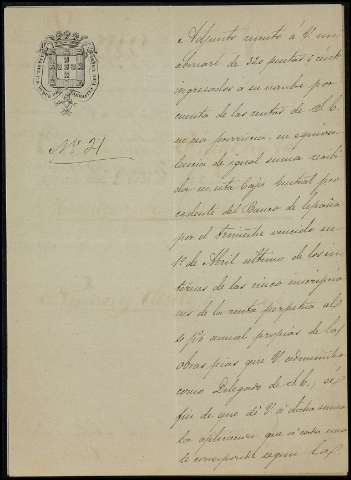 Nº 21
Adjunto remito á V. un
abonaré de 320 pesetas 5 cent
ingresadas a su nombre por
cuenta de las rentas de S. E.
en esa provincia, en equiva-
lencia de igual suma recibi
da en esta Caja Central pro
cedente del Banco de España
por el trimestre vencido en
1º de Abril ultimo de los in
tereses de las cinco inscripcio
nes de la renta perpetua al
4 p% anual, propias de las
obras pias que V. administra
como Delegado de S. E., á
fin de que dé V. á dicha suma
la aplicacion que á cada una
le corresponde segun las